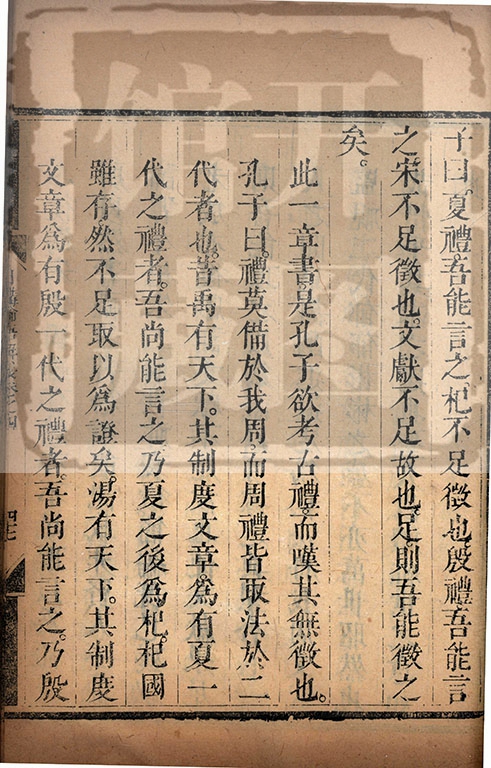 子曰。夏禮。吾能言之。杞不足徵也。殷禮吾能言
之。宋不足徵也。文獻不足故也。足則吾能徵之
矣。
此一章書。是孔子欲考古禮。而嘆其無徵也。
孔子曰。禮莫備於我周。而周禮皆取法於二
代者也。昔禹有天下。其制度文章。為有夏一
代之禮者。吾尚能言之。乃夏之後為杞。杞國
雖存。然不足取以為證矣。湯有天下。其制度
文章。為有殷一代之禮者。吾尚能言之。乃殷